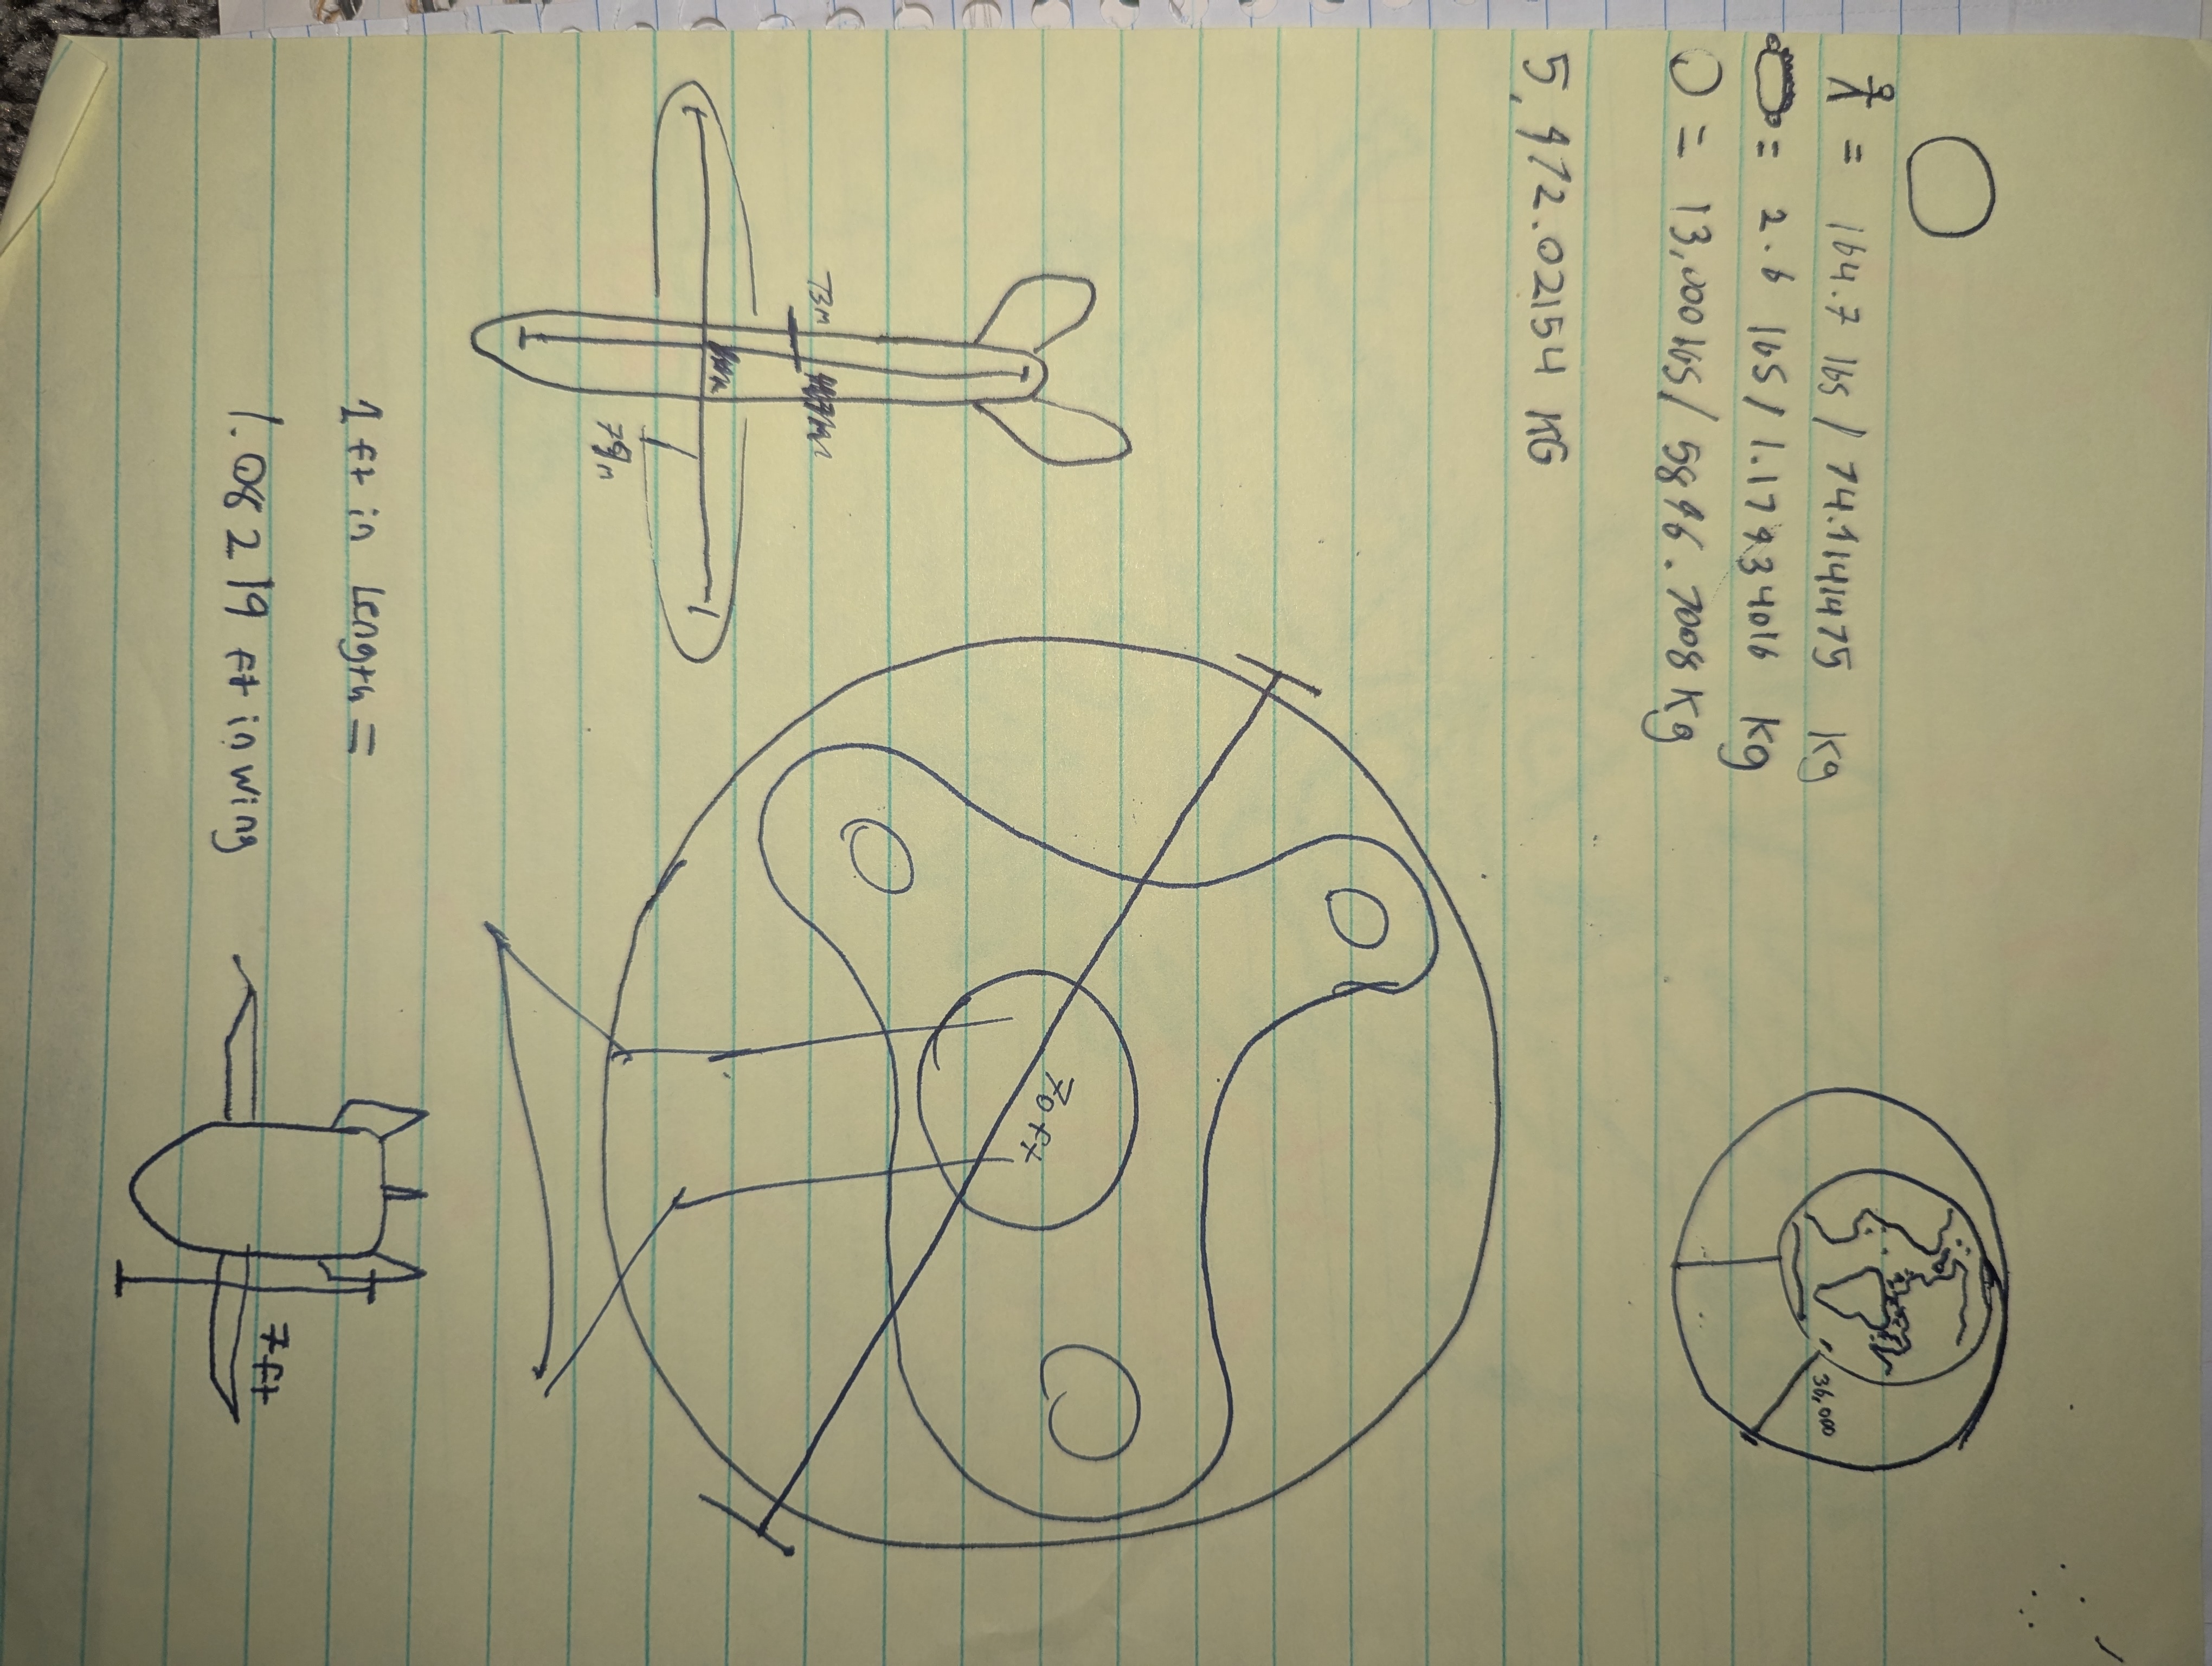 = 164.7 lbs / Kg
= 2.6 lbs / 1.17934016 Kg
= 13,000 lbs / 5896.7008 Kg
36,000
5,972.02154 KG
70 ft
73m
1 ft in Length =
1.08219 ft in wing
7 ft